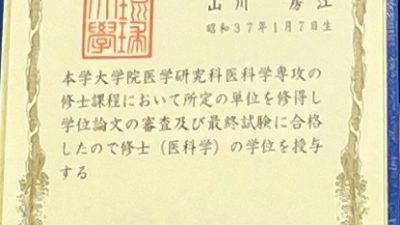 山川 房江
昭和37年1月7日生
琉球
大學
本学大学院医学研究科医科学専攻の
修士課程において所定の単位を修得し
学位論文の審査及び最終試験に合格
したので修士（医科学）の学位を授与
する